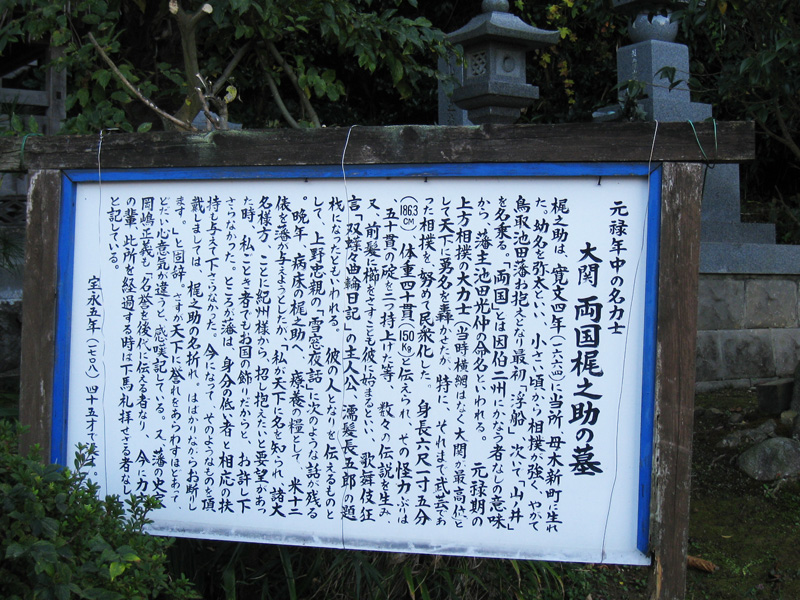 元禄年中の名力士
大関 両国梶之助の墓
梶之助は、寛文四年(一六六四)に当所、母木新町に生れ
た。幼名を弥太といい、小さい頃から相撲が強く、やがて
鳥取池田藩お抱えとなり最初「浮船」次いで「山ノ井」
を名乗る。「両国」とは因伯二州にかなう者なしの意味
から、藩主池田光仲の命名といわれる。 元禄期の
上方相撲の大力士(当時横綱はなく大関が最高位)と
して天下に勇名を轟かせたが、特に、それまで武芸であ
った相撲を、努めて民衆化した。身長六尺一寸五分
(186.3CM) 体重四十貫(150Kg)と伝えられ、その怪力ぶりは
、五十貫の碇を二つ持上げた等、数々の伝説を生み、
又、前髪に櫛をさすことも彼に始まるといい、歌舞伎狂
言「双蝶々曲輪日記」の主人公、濡髪長五郎の題
材になったともいわれる。 彼の人となりを伝えるものと
して、上野忠親の「雪窓夜話」に次のような話が残る
。晩年、病床の梶之助へ、療養の糧として、米十二
俵を藩が与えようとしたが、「私が天下に名を知られ、諸大
名様方、ことに紀州様から、招し抱えたいと要望があっ
た時、私ごとき者でもお国の飾りだからと、お許し下
さらなかった。ところが藩は、身分の低い者と相応の扶
持も与えて下さらなかった。今になって、そのようなものを頂
戴しましては、梶之助の名折れ。はばかりながらお断りし
ます。」と固辞。さすが天下に誉れをあらわすほどあって
どだい心意気が違うと、感嘆記している。又、藩の史家
岡嶋正義も「名誉を後代に伝える者なり、今に力士
の輩、此所を経過する時は下馬礼拝せざる者なし」
と記している。
宝永五年(一七〇八) 四十五才で没す。